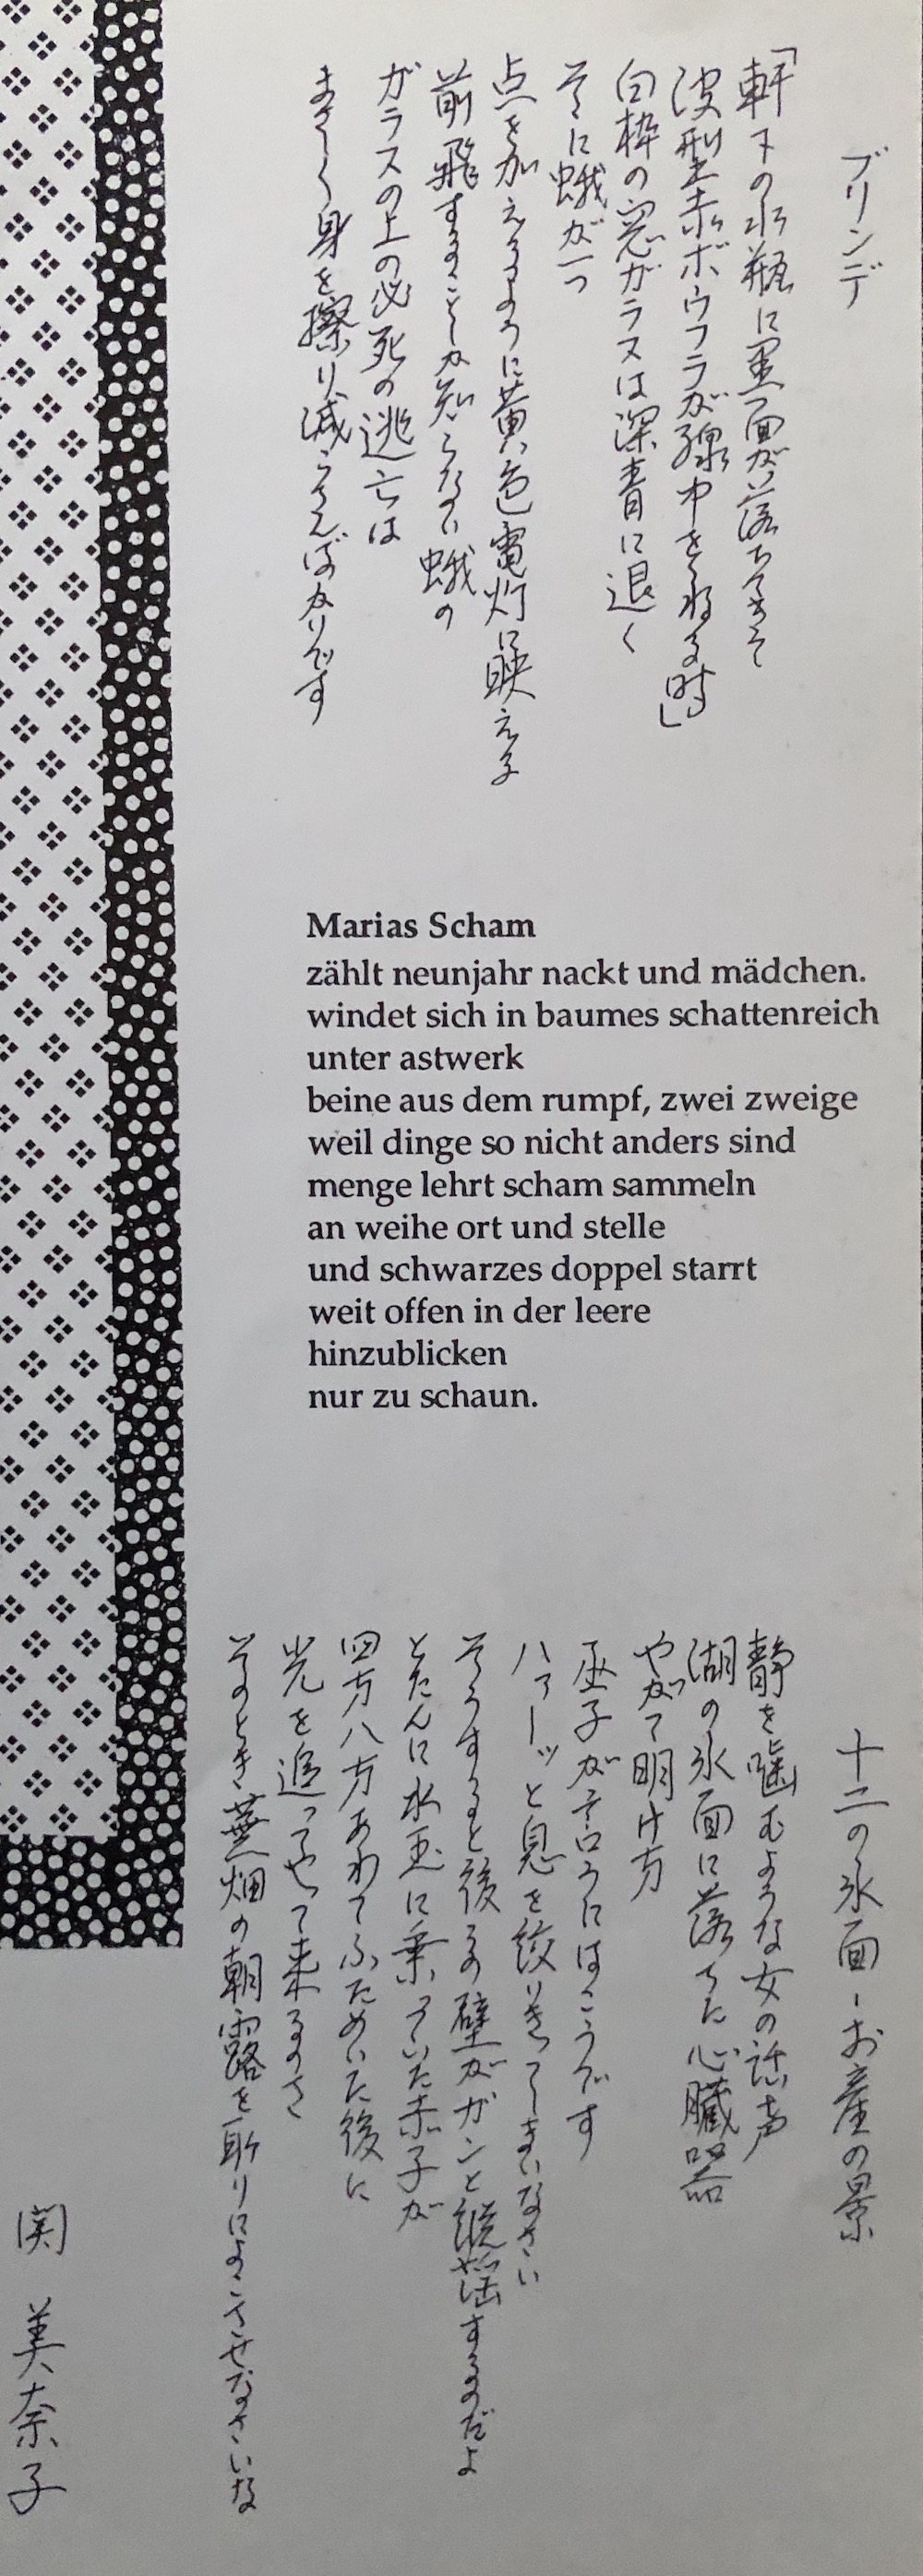 ブリンデ
「軒下の水瓶に黒面が落ちてきて
波型赤ボウフラが線中をねる時」
白枠の窓ガラスは深青に退く
そこに蛾が一つ
点を加えるように黄色電灯に映える
前飛することしか知らない蛾の
ガラスの上の必死の逃亡は
まさしく身を擦り減らさんばかりです
Marias Scham
zählt neunjahr nackt und mädchen.
windet sich in baumes schattenreich
unter astwerk
beine aus dem rumpf, zwei zweige
weil dinge so nicht anders sind
menge lehrt scham sammeln
an weihe ort und stelle
und schwarzes doppel starrt
weit offen in der leere
hinzublicken
nur zu schaun.
十二の氷面-お産の景
静を噛むような女の話声
湖の氷面に落ちた心臓器
やがて明け方
巫子が言うにはこうです
ハァーッと息を絞りきってしまいなさい
そうすると後ろの壁がガンと縦揺するのだよ
とたんに水玉に乗っていた赤子が
四方八方あわてふためいた後に
光を追ってやって来るのさ
そのとき畑の朝露を取りによこさせなさいな
関 美奈子